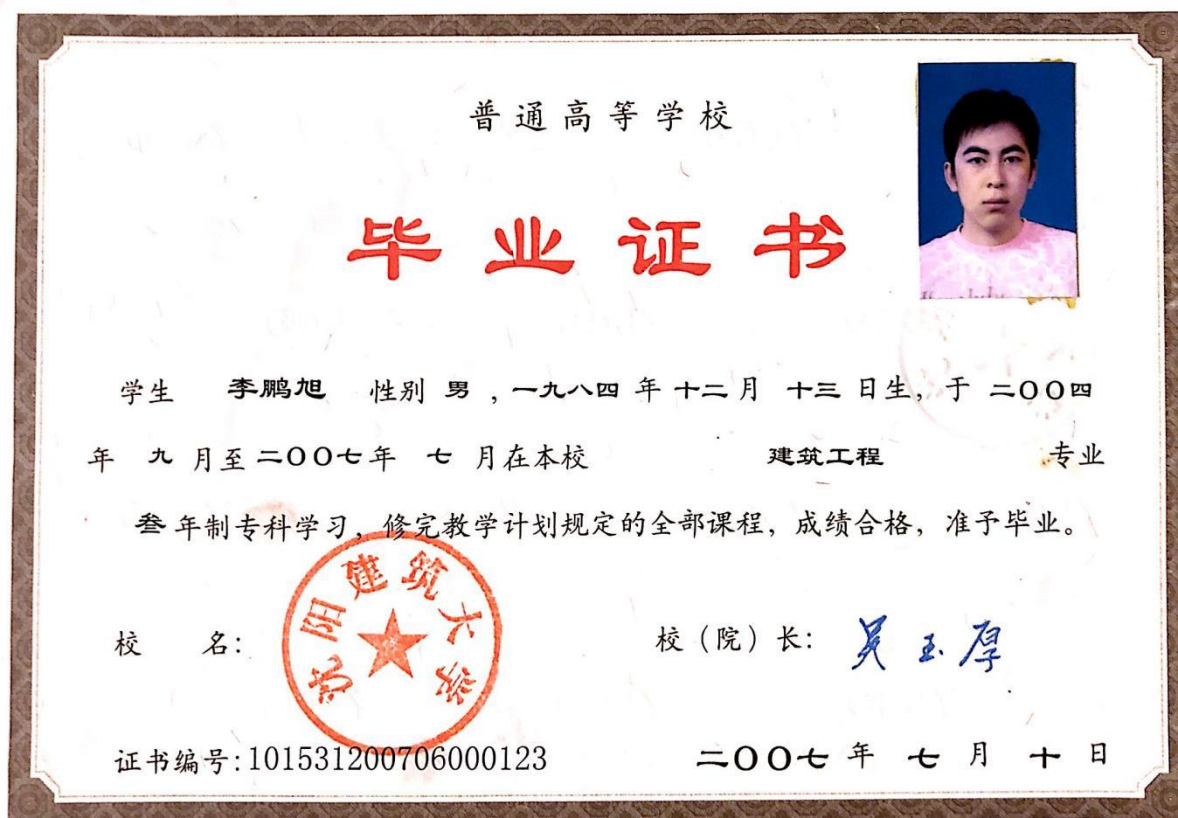 普通高等学校
毕业证书
学生 李鹏旭 性别 男，一九八四 年 十二 月 十三 日生，于 二〇〇四
年 九 月至 二〇〇七 年 七 月在本校 建筑工程 专业
叁 年制专科学习，修完教学计划规定的全部课程，成绩合格，准予毕业。
沈阳建筑大学
校 名：
校（院）长：吴玉厚
证书编号：101531200706000123
二〇〇七 年 七 月 十 日